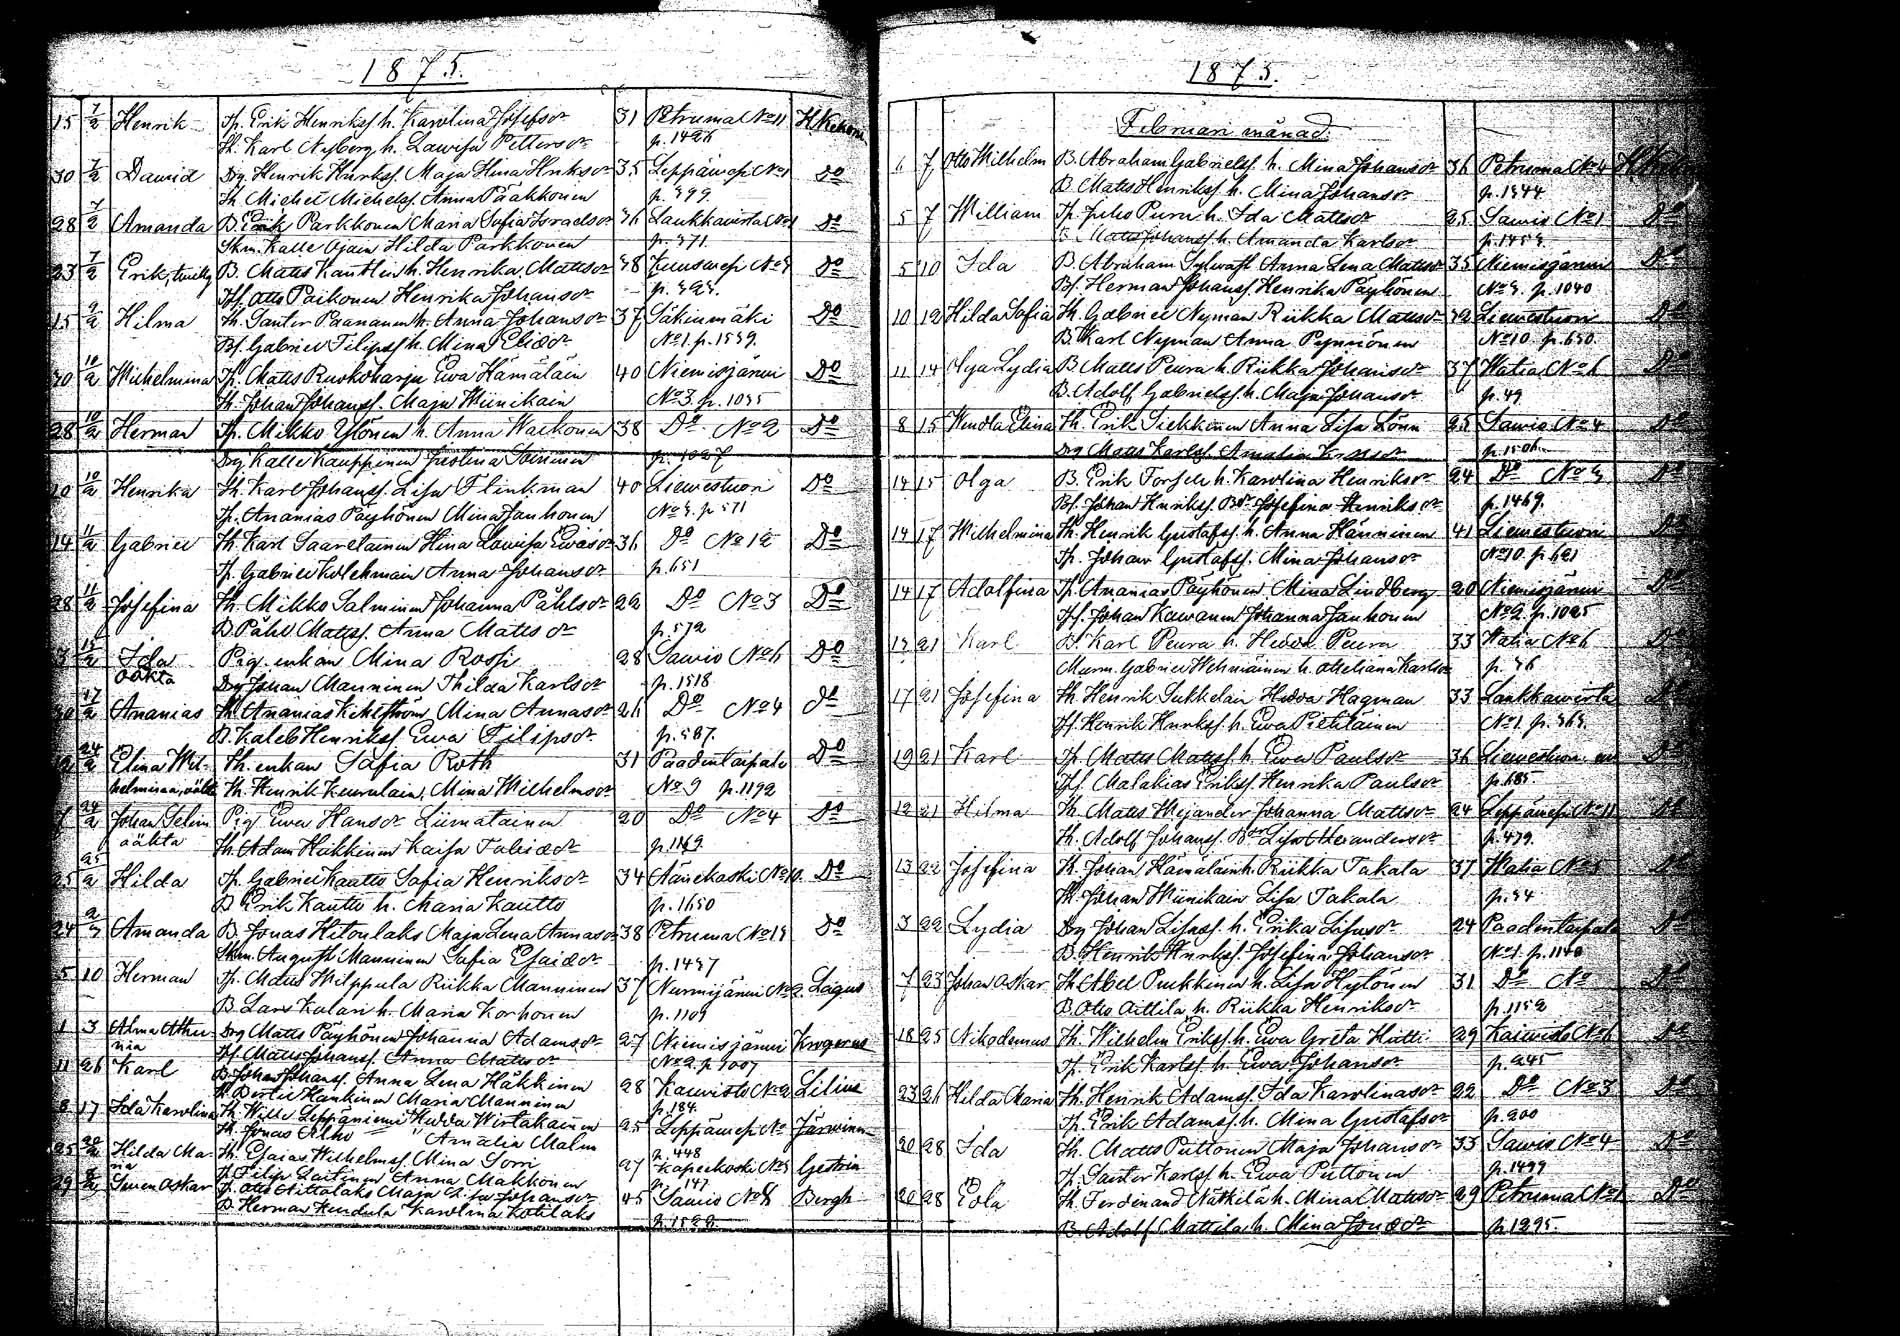 1875.
15 7/2 Henrik Tp. Erik Henrikss. h. Karolina Josefsdr 31 Petruma No 11
Th. Karl Nyberg h. Lawisa Pettersdr p. 1426
30 7/2 Dawid Drg. Henrik Henrikss. Maja Stina Hnksdr 35 Leppäwesi No 1 Do
Th Michel Michelss. Anna Pääkkönen p. 399
28 7/2 Amanda B. Erik Parkkonen Maria Sofia 36 Laukkawirta No 1 Do
Skm. Kalle Ojain Hilda Parkkonen p. 371
23 7/2 Erik, B. Matts h. Henrika Mattsdr 38 Kuuswesi No 3 Do
Otto Paikonen Henrika Johansdr
15 9/2 Hilma Th. Santer Paananen h. Anna Johansdr 37 Säkinmäki Do
Bs. Gabriel Filipss h. Mina Eliædr No 1. p. 1559.
10/2 Wilhelmina Tp. Matts Ruokoharju Ewa Hämäläin 40 Niemisjärwi Do
Th. Johan Johanss. Maja Miinikain No 3 p. 1035
28 10/2 Herman Tp. Mikko Ylönen h. Anna 38 Do No 2 Do
Drg Kalle Kauppinen Justina Soininen p. 1027
10/2 Henrika Th. Karl Johanss. Lisa Flinkman 40 Liewestuori Do
Tp. Ananias Päyhönen Mina Janhonen No 3. p 571
14 11/2 Gabriel Th Karl Saarelainen Stina Lowisa Ewasdr 36 Do No 12 Do
Tp. Gabriel Kolehmain Anna Johansdr p. 651
28 11/2 Josefina Th. Mikko Salminen Johanna Påhlsdr 22 Do No 3 Do
B Påhl Mattss. Anna Mattsdr p. 572
Ida Pig. enkan Mina Rossi 28 Sawio No 6 Do
oäkta Drg Johan Manninen Thilda Karlsdr p. 1518
17/2 Ananias Th Ananias Mina Annasdr 26 Do No 4 Do
B. Kaleb Henrikss Ewa Filipsdr p. 587.
24/2 Elina Wil- Th. enkan Safia Roth 31 Paadentaipale Do
helmina, oäkta Th. Henrik Mina Wilhelmsdr No 9 p. 1192
24/2 Johan Selim Pig Ewa Hansdr Liimatainen 20 Do No 4 Do
oäkta Th. Adam Häkkinen Kaisa Tobiædr p. 1169
25 25/2 Hilda Tp. Gabriel Kautto Safia Henriksdr 34 Äänekoski No 10. Do
B Erik Kautto h. Maria Kautto p. 1650
24 2/3 Amanda B. Jonas Hitonlaks Maja Lena Annasdr 38 Petruma No 13 Do
Skm. August Manninen Safia Esaiædr p. 1437
5 10 Herman Tp. Matts Wilppula Riikka Manninen 37 Nurmijärwi No 2. Lagus
B Lars Kalari h. Maria Korhonen p. 1109
1 3 Alma Athe- Drg Matts Päyhönen Johanna Adamsdr 27 Niemisjärwi Krogerus
nia Matts Johanss. Anna Mattsdr No 2. p 1007
11 26 Karl B Johan Johanss. Anna Lena Häkkinen 28 Kaiwisto No 2 Lilius
Bertel Häkkinen Maria Manninen p. 184.
8 17 Ida Karolina Th. Wille Leppäniemi Hedda Wirtakainen 25 Leppäwesi No Järwinen
Th. Jonas Amalia Malm p. 448
25 20/2 Hilda Ma- Th. Esaias Wilhelmss Mina Sorri 27 Kapeekoski No 3 Gestrin
ria Filip Laitinen Anna Makkonen p. 147
29 Swen Oskar Tp. Otto Aittolaks Maja Lisa Johansdr 45 Sawio No 8 Bergh
B Herman Karolina Kotilaks p. 1522.
1875.
Februari månad.
6 7 Otto Wilhelm B. Abraham Gabrielss. h. Mina Johansdr 36 Petruma No 4
B. Matts Henrikss. h. Mina Johansdr p. 1344
5 7 William Tp. Juho Puru h. Ida Mattsdr 25 Sawio No 1 Do
B Matts Johanss. h. Amanda Karlsdr p. 1453.
5 10 Ida B. Abraham Sylwast Anna Lena Mattsdr 35 Niemisjärwi Do
Bs. Herman Johanss. Henrika Päyhönen No 3. p. 1040
10 12 Hilda Safia Th. Gabriel Nyman Riikka Mattsdr 42 Liewestuori Do
B. Karl Nyman Anna Pynnönen No 10 p. 630.
11 14 Olga Lydia B. Matts Peura h. Riikka Johansdr 37 Watia No 6 Do
B. Adolf Gabrielss. h. Maja Johansdr p. 49
8 15 Wendla Elina Th. Erik Siekkinen Anna Lisa Lönn 25 Sawio No 4 Do
Drg Matts Karlss. Amalia p. 1506
14 15 Olga B. Erik Torsell h. Karolina Henriksdr 24 Do No 3 Do
Bs. Johan Hnrikss. Josefina Henriksdr p. 1469.
14 17 Wilhelmina Th. Henrik Gustafss. h. Anna Hänninen 41 Liewestuori Do
Tp. Johan Gustafss. Mina Johansdr No 10 p. 621
14 17 Adolfina Tp. Ananias Päyhönen, Mina Lindberg 20 Niemisjärwi Do
Johan Kawanen Johanna Janhonen No 2. p. 1025
21 Karl B. Karl Peura h. Hedda Peura 33 Watia No 6 Do
Murm. Gabriel Hehmäinen h. Otteliana Karlsdr p. 46
17 21 Josefina Th. Henrik Sukkelain Hedda Hagman 33 Laukkawirta Do
Henrik Hnrkss. h. Ewa Pietiläinen No 1. p. 363.
19 21 Karl Tp. Matts Mattss. h. Ewa Paulsdr 36 Liewestuori Do
Malakias Erikss. Henrika Paulsdr p. 685
12 21 Hilma Th. Matts Wejander Johanna Mattsdr 24 Leppäwesi No 11 Do
Th. Adolf Johanss. p. 479.
13 22 Josefina Th. Johan Hämäläin h. Riikka Takala 37 Watia No 5 Do
Th. Johan Miinikain Lisa Takala p. 34
3 22 Lydia Drg Johan Lisass. h. Erika Lisasdr 24 Paadentaipale Do
B. Henrik Hnrkss. Josefina Johansdr No 1. p. 1140
7 23 Johan Oskar Th Abel Purkkinen h. Lisa Hytönen 31 Do No Do
B. Otto Aittila, h. Riikka Henriksdr p. 1152
18 25 Nikodemus Th. Wilhelm Erikss. h. Ewa Greta Hutti 29 Kaiwisto No 6 Do
Tp. Erik Karlss. h. Ewa Johansdr p. 245
23 26 Hilda Maria Th. Henrik Adamss. Ida Karolinasdr 22 Do No 3 Do
Tp. Erik Adamss. h. Mina Gustafsdr p. 200
20 28 Ida Th. Matts Puttonen Maja Johansdr 33 Sawio No 4 Do
Santer Karlss. h. Ewa Puttonen p. 1499
20 28 Eola Th. Ferdinand Mattila h. Mina Mattsdr 29 Petruma No 1 Do
B. Adolf Mattila h. Mina Jonædr p. 1295.